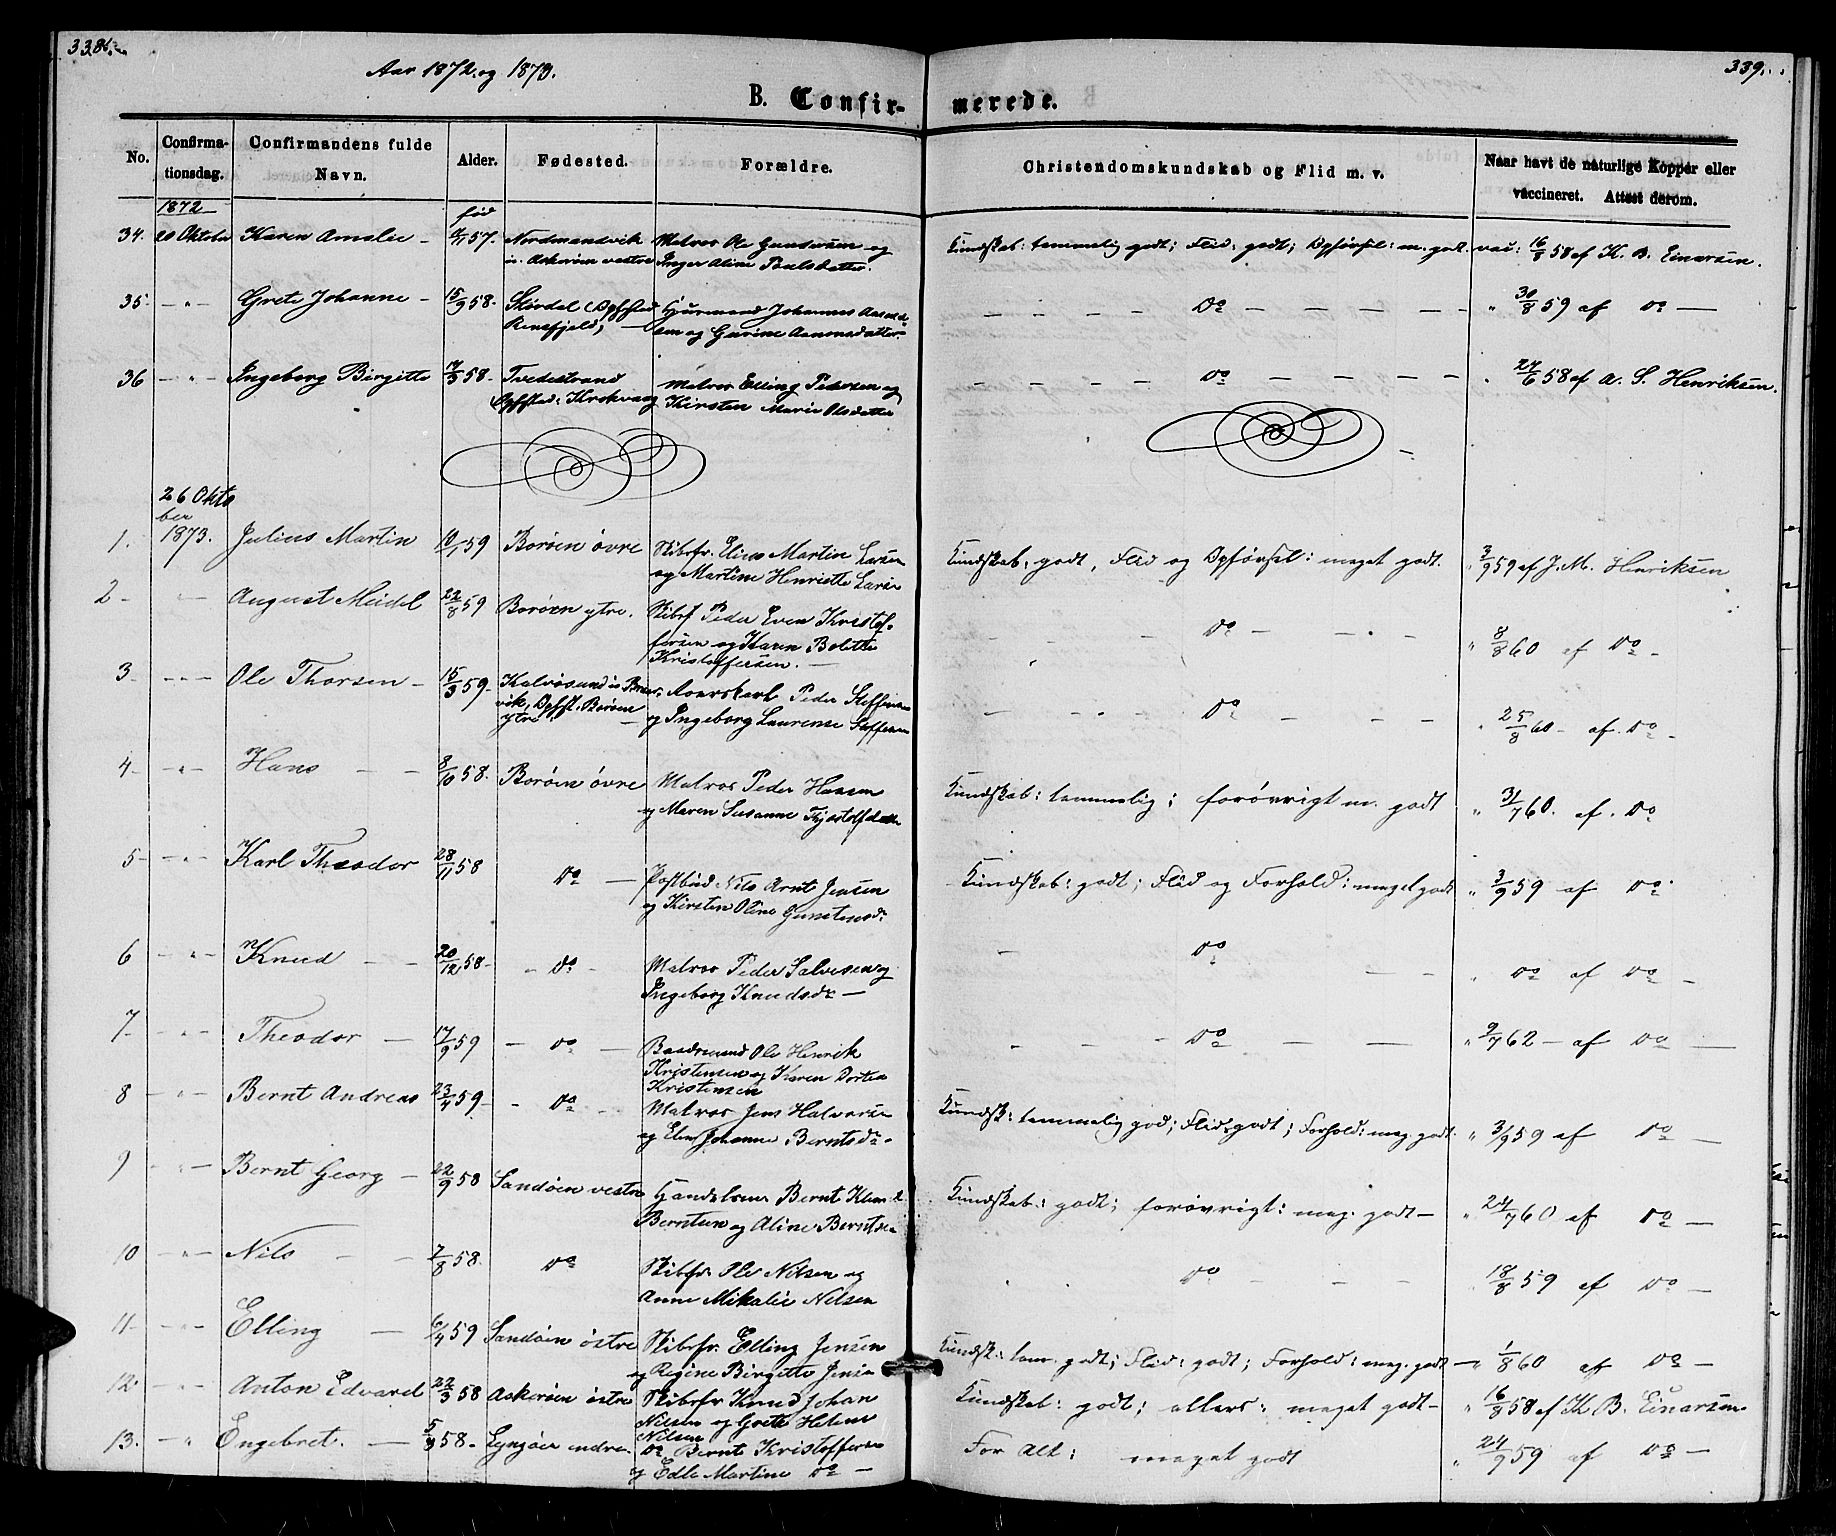 338.
Aar 1872 og 1873.
B. Confir-
merede.
339.
No.
Confirma-
tionsdag.
Confirmandens fulde
Navn.
Alder.
Fødested.
Forældre.
Christendomskundskab og Flid m. v.
Naar havt de naturlige Kopper eller
vaccineret. Attest derom.
1872
fød
34. 20 Oktober Karen Amalie - 57. Nordmandvik Matros Ole Gundersen og Kundskab: temmelig godt; Flid: godt; Opførsel: m. godt. vac: 16/8 58 af K. B. Einarsen.
i Askerøen vestre Inger Aline Poulsdatter.
35 - " - Grete Johanne - 15/9 58. Skirdal (Opfsted Hjuremand Johannes - Do - " 30/8 59 af Do -
Rensfjeld) - sen og Gurine Aanensdatter.
36 - " - Ingeborg Birgitte 17/3 58. Tvedestrand Matros Elling Pedersen og - Do - " 24/6 58 af A. S. Henriksen.
Opfsted: Krokvaag Kirsten Marie Olsdatter
26 Okto
ber
1. 1873. Julius Martin 10/1 59 Borøen øvre Skibsfr. Elias Martin Larsen Kundskab: godt, Flid og Opførsel: meget godt. " 3/9 59 af J. M. Henriksen
og Martine Henriette Larsen
2 - " - August Meidel 22/8 59 Borøen ytre. Skibsf. Peder Even Kristof- - Do - " 8/8 60 af Do -
fersen og Karen Bolette
Kristoffersen. -
3. - " - Ole Thorsen - 15/3 59 - Kalvøsund i
vik, Opfst. Borøen Peder Steffensen - Do - " 25/8 60 - af Do -
ytre. - og Ingeborg Laurense Steffensen
4 - " - Hans - 8/10 58. Borøen øvre Matros Peder Hansen Kundskab: temmelig; forøvrigt m. godt " 31/7 60. af Do
og Maren Susanne
5 - " - Karl Theodor 28/11 58 Do - Postbud Nils Arnt Jensen Kundskab: godt; Flid og Forhold: meget godt " 3/9 59 af Do
og Kirsten Oline
6 - " - Knud - 20/12 58 - Do - Matros Peder Salvesen og - Do - " Do af Do -
Ingeborg Knudsdr -
7 - " - Theodor - 17/9 59 - Do - Baadmand Ole Henrik - Do - " 9/7 62 - af Do -
Kristensen og Karen Dortea
Kristensen
8 - " - Bernt Andreas 23/4 59 - Do - Matros Jens Halvorsen Kundsk: temmelig god; Flid: godt; Forhold: meg. godt. " 3/9 59 af Do -
og Elen Johanne Berntsdr.
9 - " - Bernt Georg - 22/9 58 Sandøen vestre Handelsm Bernt Kundskab: godt; forøvrigt: meg. godt - " 24/7 60 af Do -
Berntsen og Aline Berntsen
10 - " - Nils - 7/8 58. Do Skibsfr. Ole Nilsen og - Do - " 18/8 59 af Do -
Anne Mikalie Nilsen
11 - " - Elling - 6/4 59 Sandøen østre Skibsfr. Elling Jensen Kundsk: tem. godt; Flid: godt; Forhold: meg. godt - " 1/8 60 af Do -
og Regine Birgitte Jensen
12 - " - Anton Edvard 22/3 58 Askerøen østre Skibsfr Knud Johan Kundskab: godt; ellers: meget godt - " 16/8 58 af K. B. Einarsen.
Nilsen og Grete Helene
Nilsen
13. - " Engebret. - 5/9 58 - Lyngøer indre. Do Bernt Kristoffersen For Alt: meget godt " 24/9 59 af Do -
og Edle Martine Do -